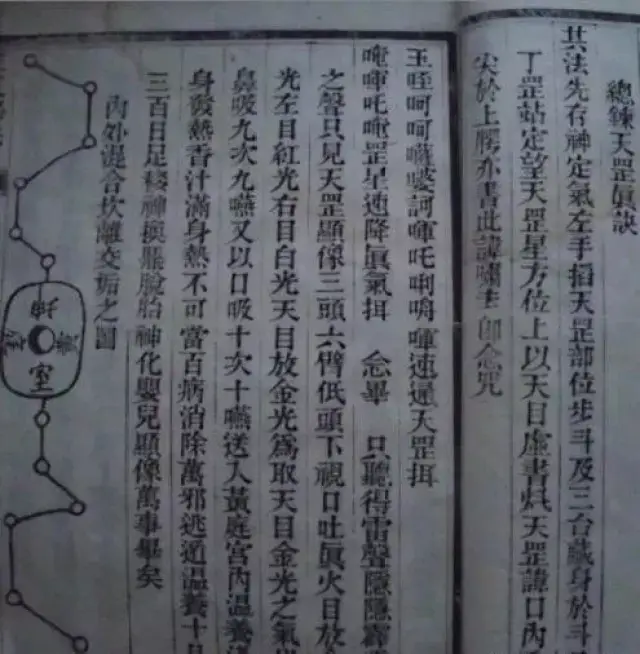 總鍊天罡真訣
其法先存神定氣左手掐天罡部位步斗及三台藏身於斗
丁罡站定望天罡星方位上以天目虛書此天罡諱口內
尖於上腭亦書此諱嘯
即念咒
玉
呵呵囉娑訶唵吒唎
速還天罡挕
唵
吒
罡星速降真氣挕 念畢 只聽得雷聲隱隱
之聲只見天罡顯像三頭六臂低頭下視口吐真火目放
光左目紅光右目白光天目放金光為取天目金光之氣
鼻吸九次九嚥又以口吸十次十嚥送入黃庭宮內溫養
身發熱香汁滿身熱不可當百病消除萬邪逃遁溫養十
三百日足
神換胎脫胎神化嬰兒顯像萬事畢矣
內外混合坎離交姤之圖
坤
室